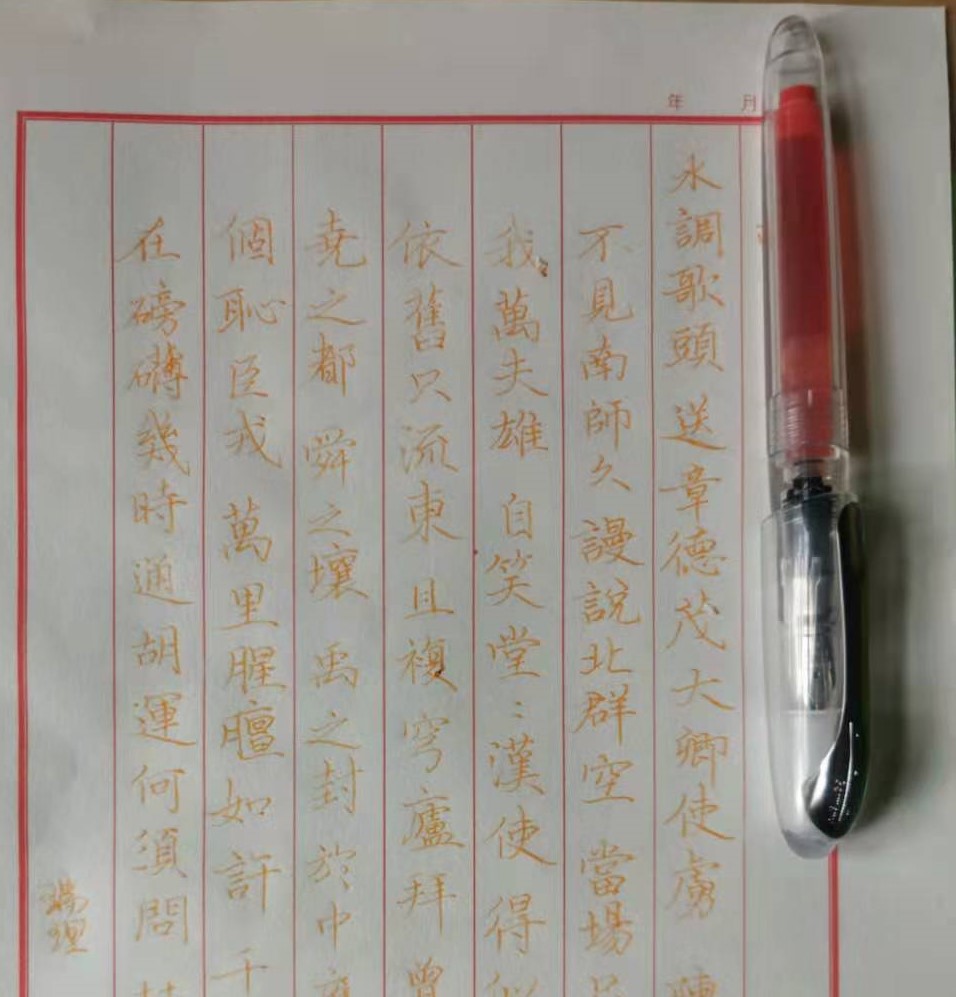 年 月
水調歌頭 送章德茂大卿使虜 陳
不見南師久 謾說北群空 當場
我萬夫雄 自笑堂〻漢使 得似
依舊只流東 且複穹廬拜 曾
堯之都 舜之壤 禹之封 於中
個恥臣戎 萬里腥膻如許 千
在磅礴幾時通 胡運何須問